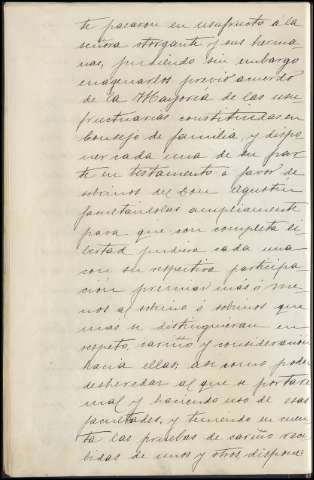 te pasaron en usufructo á la
señora otorgante y sus herma
nas, pudiendo sin embargo
enagenarlos previo acuerdo
de la Mayoría de las usu
fructuarias constituidas en
Consejo de familia, y dispo
ner cada una de su par
te en testamento á favor de
sobrinos de Don Agustín
facultándolas ampliamente
para que con completa li
bertad pudiera cada una
con su respectiva participa
ción premiar más ó me
nos al sobrino ó sobrinos que
mas se distinguieran en
respeto, cariño y consideración
hacia ellas; asi como poder
desheredar al que se portare
mal y haciendo uso de esas
facultades, y teniendo en cuen
ta las pruebas de cariño reci
bidas de unos y otros dispone: